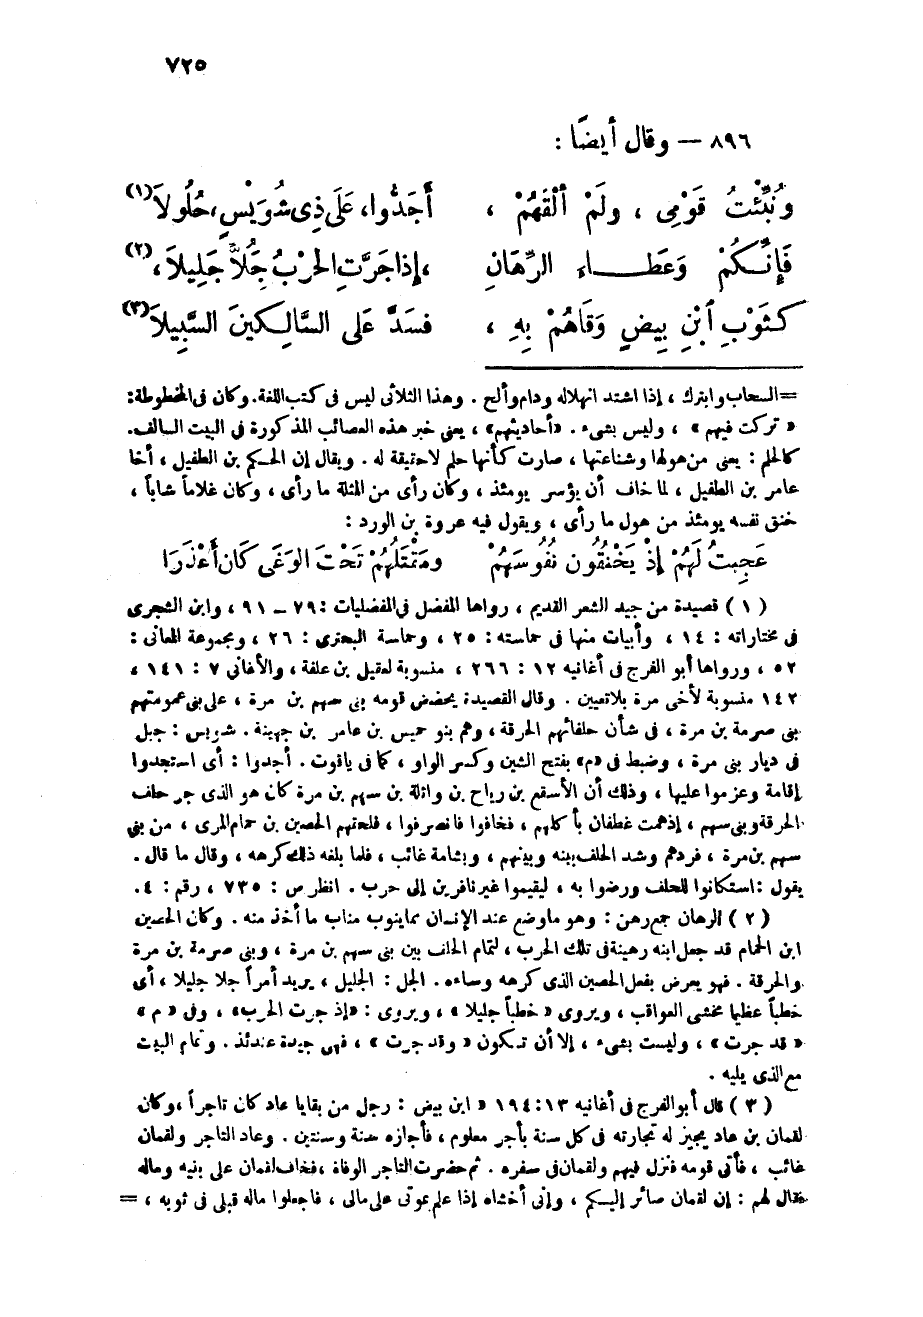 ٧٢٥
٨٩٦ — وقال أيضًا :
ونُبِّئْتُ قَوْمِى ، ولَمْ أَلْقَهُمْ ، أَجَدُّوا، عَلَى ذِى شُوَيْسٍ، حُلُولاَ(١)
فَإِنَّكُمْ وَعَطَاءِ الرِّهَانِ ، إذا جَرَّتِ الحَرْبُ جُلاًّ جَلِيلاَ ،(٢)
كَثَوْبِ ٱبْنِ بِيضٍ وَقَاهُمْ بِهِ ، فسَدَّ عَلَى السَّالِكِينَ السَّبِيلاَ(٣)
=السحاب وابترك ، إذا اشتد انهلاله ودام وألح . وهذا الثلاثى ليس فى كتب اللغة. وكان فى المخطوطة:
« تركت فيهم » ، وليس بشىء . «أحاديثهم» ، يعنى خبر هذه العصائب المذكورة فى البيت السالف.
كالحلم : يعنى من هولها وشناعتها ، صارت كأنها حلم لا حقيقة له . ويقال إن الحكم بن الطفيل ، أخا
عامر بن الطفيل ، لما خاف أن يؤسر يومئذ ، وكان رأى من المثلة ما رأى ، وكان غلاماً شاباً ،
خنق نفسه يومئذ من هول ما رأى ، ويقول فيه عروة بن الورد :
عَجِبتُ لَهُمْ إِذْ يَخْنُقُون نُفُوسَهُمْ ومَقْتَلُهُمْ تَحْتَ الوَغَى كَان أَعْذَرَا
( ١ ) قصيدة من جيد الشعر القديم ، رواها المفضل فى المفضليات : ٧٩ – ٩١ ، وابن الشجرى
فى مختاراته : ١٤ ، وأبيات منها فى حماسته : ٢٥ ، وحماسة البحترى : ٢٦ ، ومجموعة المعانى :
٥٢ ، ورواها أبو الفرج فى أغانيه ١٢ : ٢٦٦ ، منسوبة لعقيل بن علفة ، والأغانى ٧ : ١٤١ ،
١٤٢ منسوبة لأخى مرة بلا تعيين . وقال القصيدة يحضض قومه بنى سهم بن مرة ، على بنى عمومتهم
بنى صرمة بن مرة ، فى شأن حلفائهم الحرقة ، وهم بنو حميس بن عامر بن جهينة . شويس : جبل
فى ديار بنى مرة ، وضبط فى «م» بفتح الشين وكسر الواو ، كما فى ياقوت . أجدوا : أى استجدوا
إقامة وعزموا عليها ، وذلك أن الأسقع بن رياح بن واثلة بن سهم بن مرة كان هو الذى جر حلف
الحرقة وبنى سهم ، إذ همت غطفان بأكلهم ، فخافوا فانصرفوا ، فلحقهم الحصين بن حمام المرى ، من بنى
سهم بن مرة ، فردهم وشد الحلف بينه وبينهم ، وبشامة غائب ، فلما بلغه ذلك كرهه ، وقال ما قال .
يقول : استكانوا للحلف ورضوا به ، ليقيموا غير نافرين إلى حرب . انظر ص : ٧٣٥ ، رقم : ٤ .
( ٢ ) الرهان جمع رهن : وهو ما وضع عند الإنسان مما ينوب مناب ما أخذ منه . وكان الحصين
ابن الحمام قد جعل ابنه رهينة فى تلك الحرب ، لتمام الحلف بين بنى سهم بن مرة ، وبنى صرمة بن مرة
والحرقة . فهو يعرض بفعل الحصين الذى كرهه وساءه . الجل : الجليل ، يريد أمراً جلا جليلا ، أى
خطباً عظيما مخشى العواقب ، ويروى « خطباً جليلا » ، ويروى : «إذ جرت الحرب» ، وفى « م »
« قد جرت » ، وليست بشىء ، إلا أن تكون « وقد جرت » ، فهى جيدة عندئذ . وتمام البيت
مع الذى يليه .
( ٣ ) قال أبو الفرج فى أغانيه ١٣ : ١٩٤ « ابن بيض : رجل من بقايا عاد كان تاجراً ، وكان
لقمان بن عاد يجيز له تجارته فى كل سنة بأجر معلوم ، فأجازه سنة وسنتين . وعاد التاجر ولقمان
غائب ، فأتى قومه فنزل فيهم ولقمان فى سفره . ثم حضرت التاجر الوفاة ، فخاف لقمان على بنيه وماله
فقال لهم : إن لقمان صائر إليكم ، وإنى أخشاه إذا علم بموتى على مالى ، فاجعلوا ماله قبلى فى ثوبه ، =